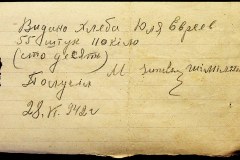 Видано хлеба Юля Евреев
55 штук 110 кіло
(сто десять)
Получіл М
28. VI. 942 г